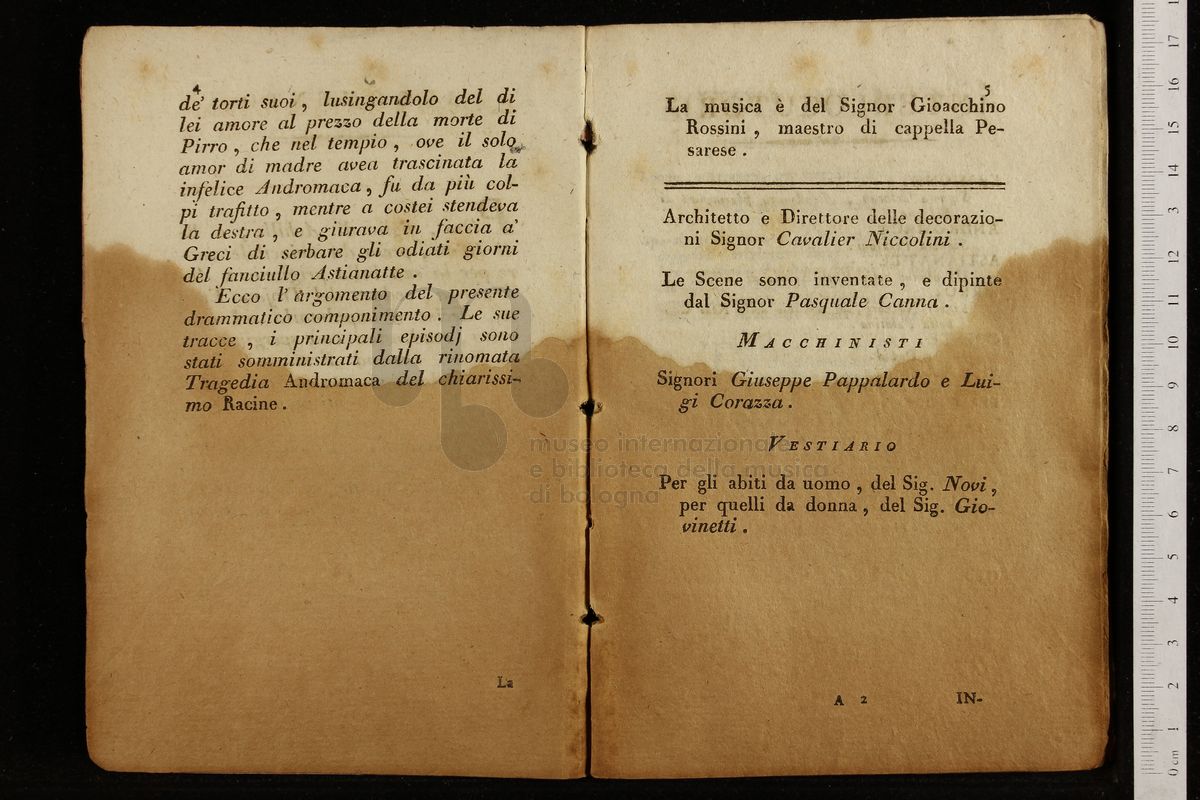 4
de' torti suoi , lusingandolo del di
lei amore al prezzo della morte di
Pirro , che nel tempio , ove il solo
amor di madre avea trascinata la
infelice Andromaca , fu da più col-
pi trafitto , mentre a costei stendeva
la destra , e giurava in faccia a'
Greci di serbare gli odiati giorni
del fanciullo Astianatte .
Ecco l' argomento del presente
drammatico componimento . Le sue
tracce , i principali episodj sono
stati somministrati dalla rinomata
Tragedia Andromaca del chiarissi-
mo Racine .
La
5
La musica è del Signor Gioacchino
Rossini , maestro di cappella Pe-
sarese .
Architetto e Direttore delle decorazio-
ni Signor Cavalier Niccolini .
Le Scene sono inventate , e dipinte
dal Signor Pasquale Canna .
MACCHINISTI
Signori Giuseppe Pappalardo e Lui-
gi Corazza .
VESTIARIO
Per gli abiti da uomo , del Sig. Novi ,
per quelli da donna , del Sig. Gio-
vinetti .
A 2
IN-
museo internazionale
e biblioteca della musica
di bologna
0 cm 1 2 3 4 5 6 7 8 9 10 11 12 13 14 15 16 17